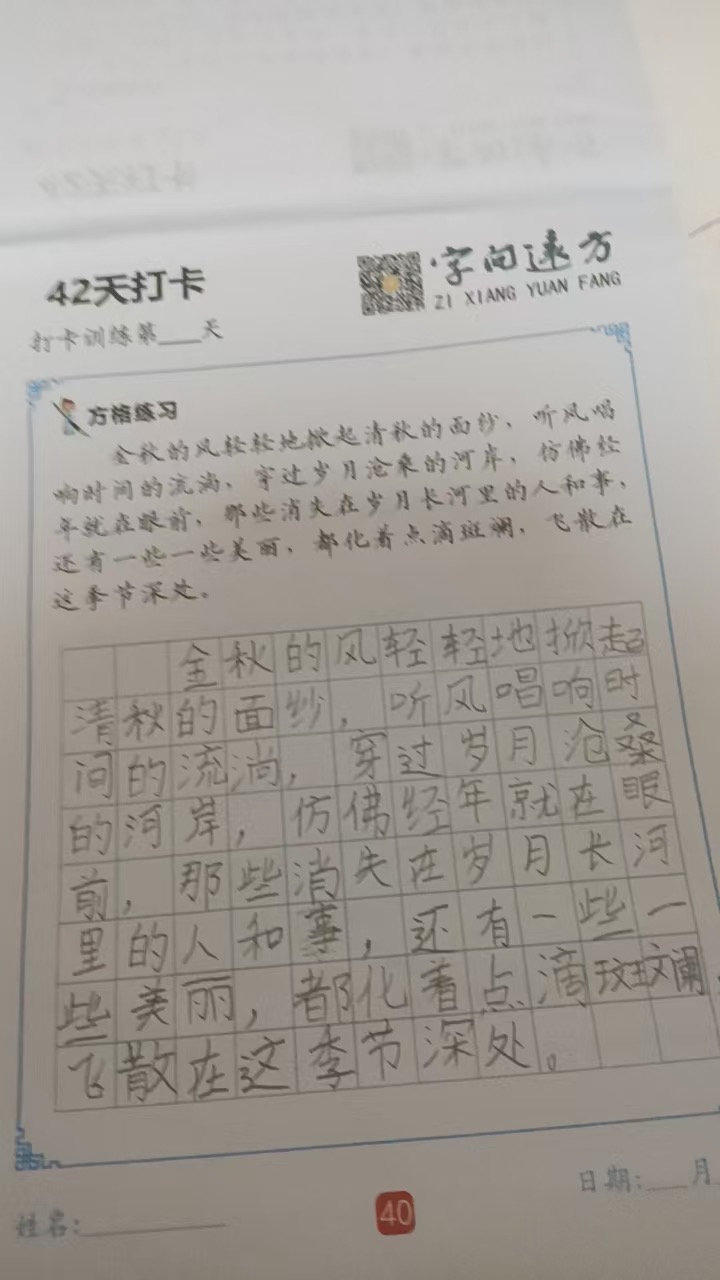 42天打卡
字向远方
ZI XIANG YUAN FANG
打卡训练第___天
方格练习
金秋的风轻轻地掀起清秋的面纱，听风唱
响时间的流淌，穿过岁月沧桑的河岸，仿佛经
年就在眼前，那些消失在岁月长河里的人和事，
还有一些一些美丽，都化着点滴斑斓，飞散在
这季节深处。
金秋的风轻轻地掀起
清秋的面纱，听风唱响时
间的流淌，穿过岁月沧桑
的河岸，仿佛经年就在眼
前，那些消失在岁月长河
里的人和事，还有一些一
些美丽，都化着点滴斑斓，
飞散在这季节深处。
日期:___月
姓名:
40